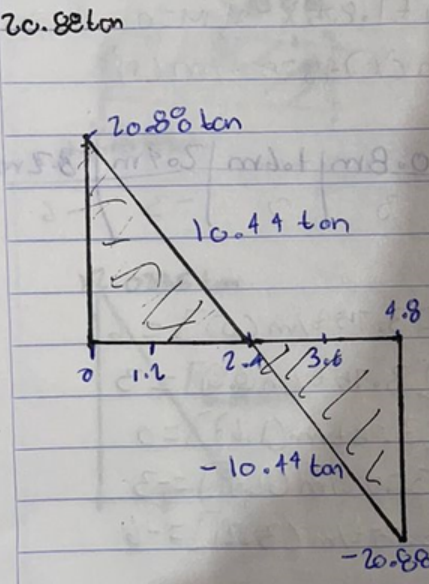 20.88ton
20.88 ton
10.44 ton
4.8
0 1.2 2.4 3.6
-10.44 ton
-20.88